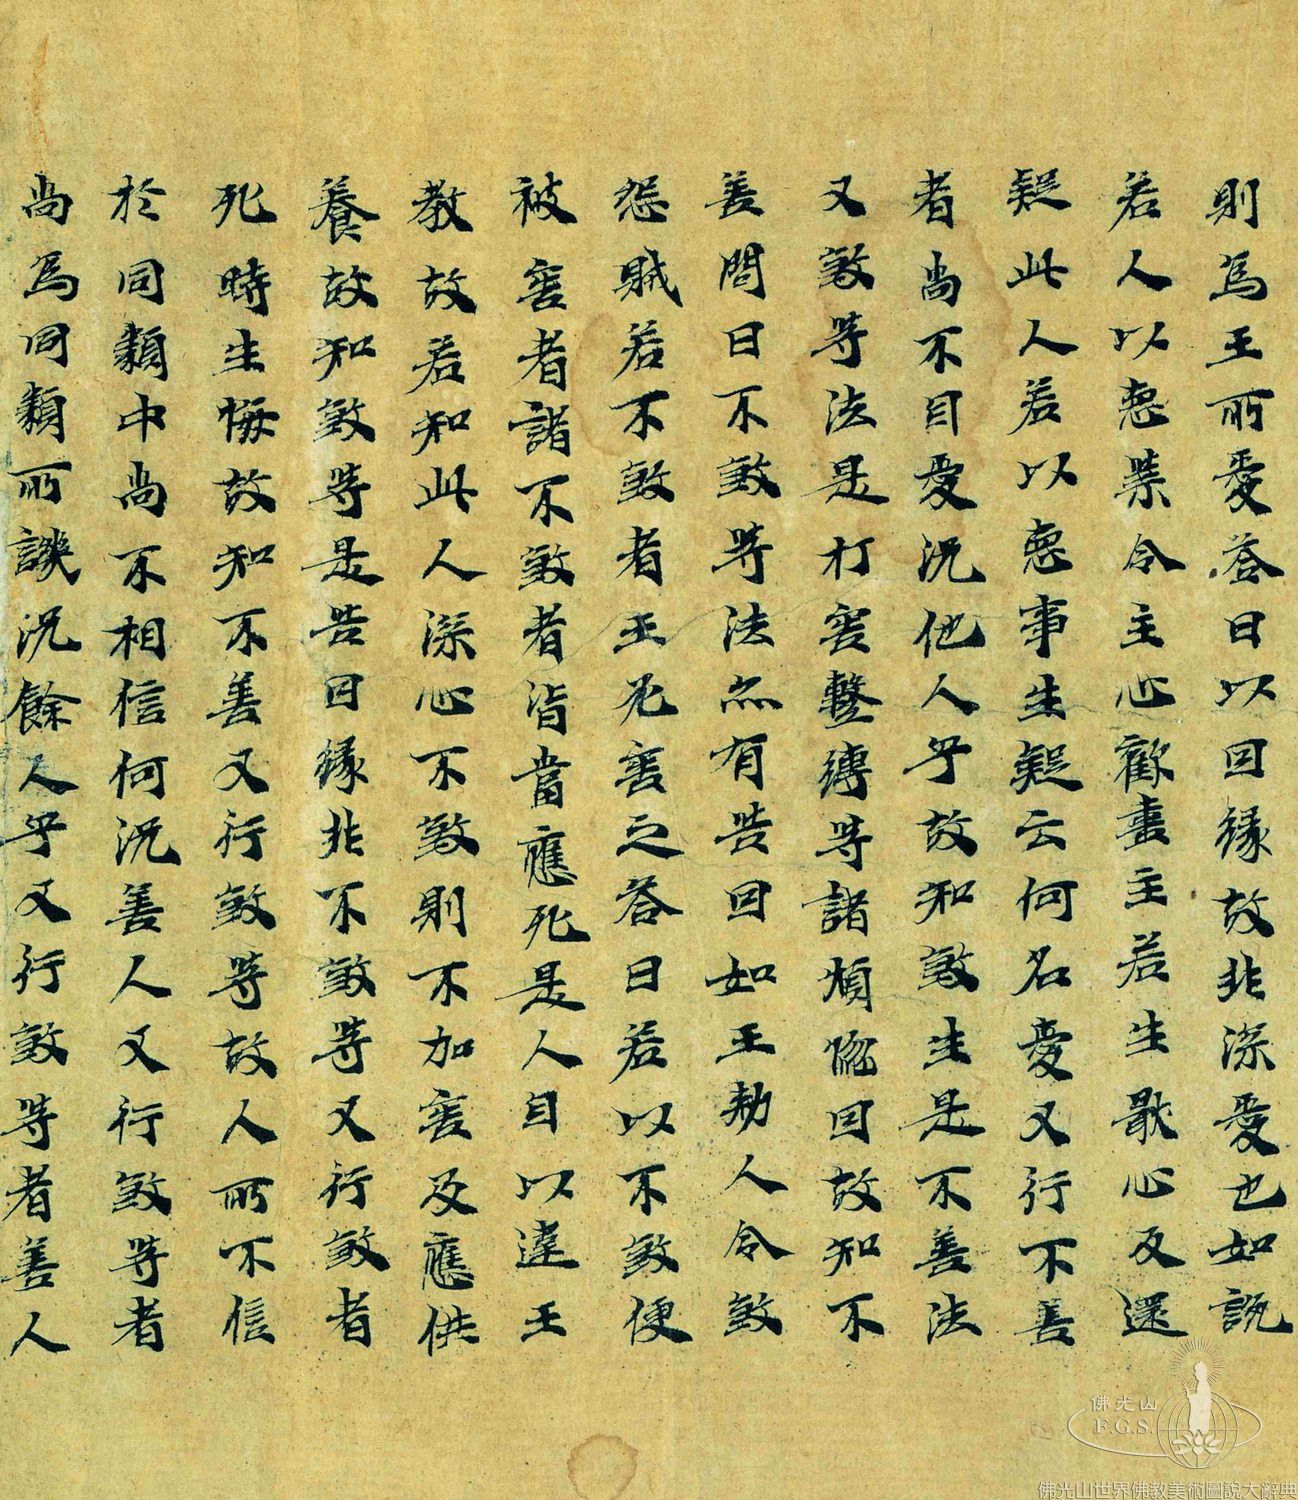 則為王所愛荅曰以因緣故非深愛也如說
若人以惡業令主心歡喜主若生猒心反還
疑此人若以惡事生疑云何名愛又行不善
者尚不自愛況他人乎故知煞生是不善法
又煞等法是打害繫縛等諸煩惱因故知不
善問曰不煞等法亦有苦因如王勅人令煞
怨賊若不煞者王害之荅曰若以不煞便
被害者諸不煞者皆當應死是人自以違王
教故若知此人深心不煞則不加害及應供
養故知煞等是苦因緣非不煞等又行煞者
死時生悔故知不善又行煞等故人所不信
於同類中尚不相信何況善人又行煞等者
尚為同類所譏況餘人乎又行煞等者善人
佛光山
F.G.S.
佛光山世界佛教美術圖說大辭典